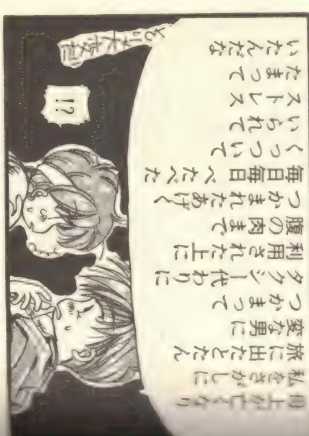 母上が亡くなり
私をさがしに
旅に出たとたん
変な男に
つかまって
タクシー代わりに
利用された上に
腹の肉まで
つかまれたあげく
毎日毎日べたべた
くっついて
いられて
ストレス
たまって
いたんだな
!?